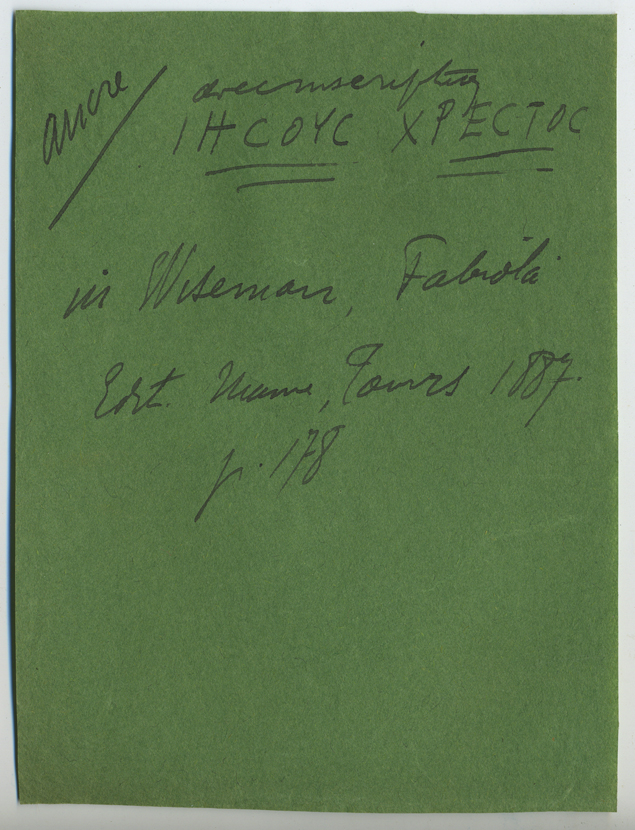 ancre / avec inscription
ΙΗCΟΥC ΧΡΕCΤΟC
in Wiseman, Fabiola
Edit. Mame, Tours 1887.
p. 178